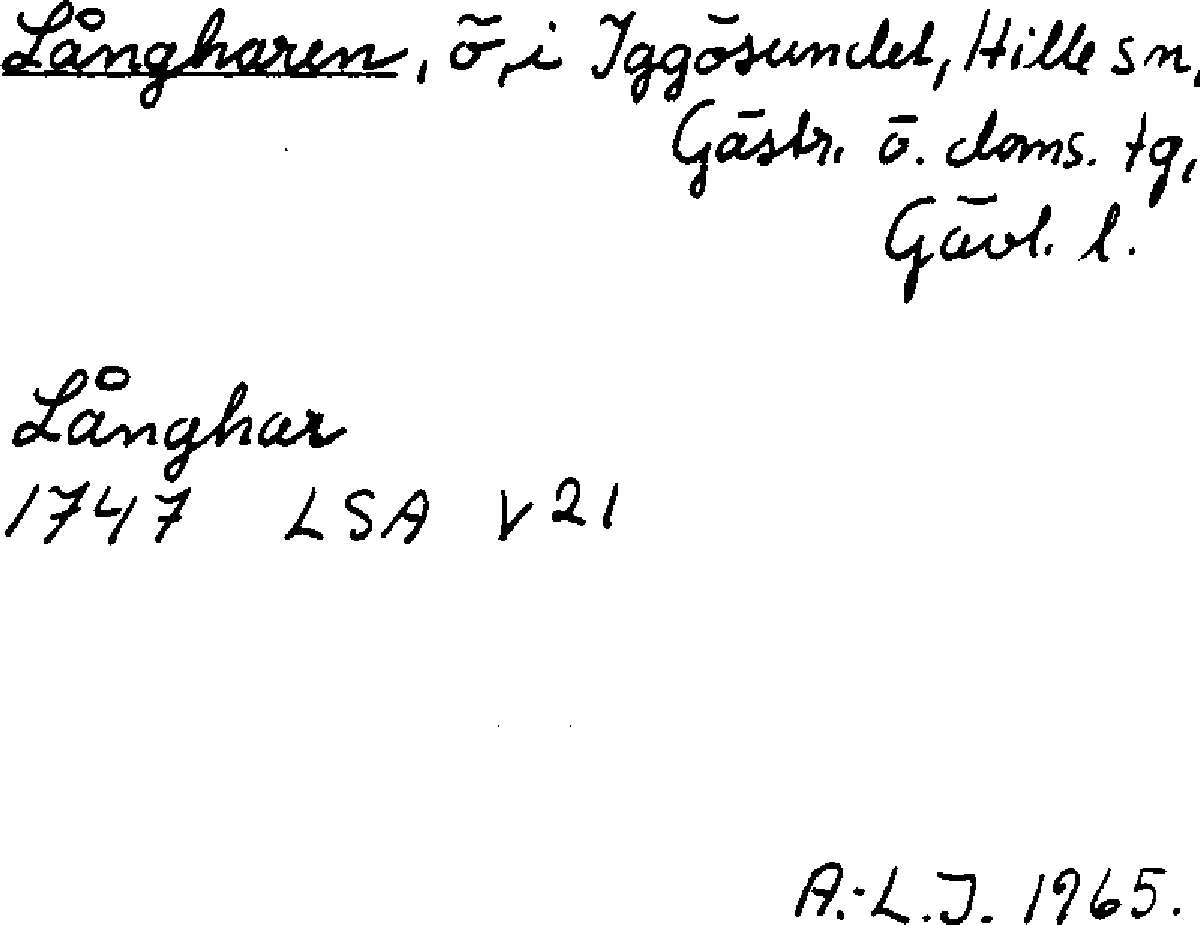 Långharen, ö, i Iggösundet, Hille sn,
Gästr. ö. doms. tg,
Gävl. l.
Långhar
1747 LSA V21
A.-L.J. 1965.